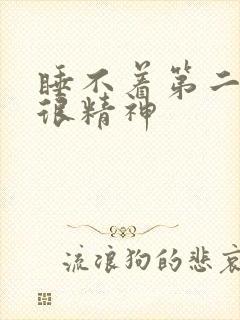 睡不着第二
很精神
流浪狗的悲哀